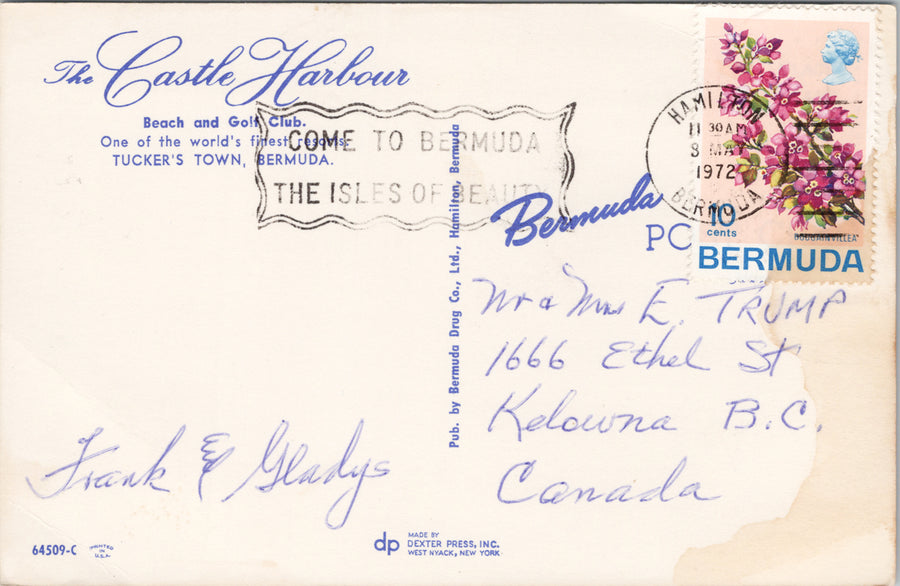 The Castle Harbour
Beach and Golf Club.
One of the world's finest resorts.
TUCKER'S TOWN, BERMUDA.
COME TO BERMUDA
THE ISLES OF BEAUTY
HAMILTON
11 30 AM
3 MAY
1972
BERMUDA
10
cents
BOUGAINVILLEA
BERMUDA
Bermuda
PO
Pub. by Bermuda Drug Co., Ltd., Hamilton, Bermuda
Mr & Mrs E. TRUMP
1666 Ethel St
Kelowna B.C.
Canada
Frank & Gladys
64509-C
PRINTED
IN
U.S.A.
dp
MADE BY
DEXTER PRESS, INC.
WEST NYACK, NEW YORK